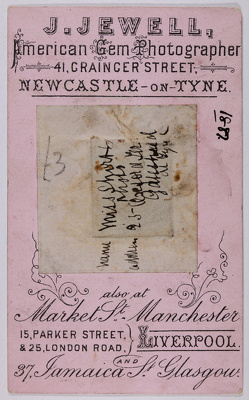 J. JEWELL,
American Gem Photographer
41, GRAINGER STREET,
NEWCASTLE-ON-TYNE.
£3
name Miss
address 25
also at
Market St. Manchester
15, PARKER STREET,
& 25, LONDON ROAD,
LIVERPOOL.
AND
37, Jamaica St. Glasgow.